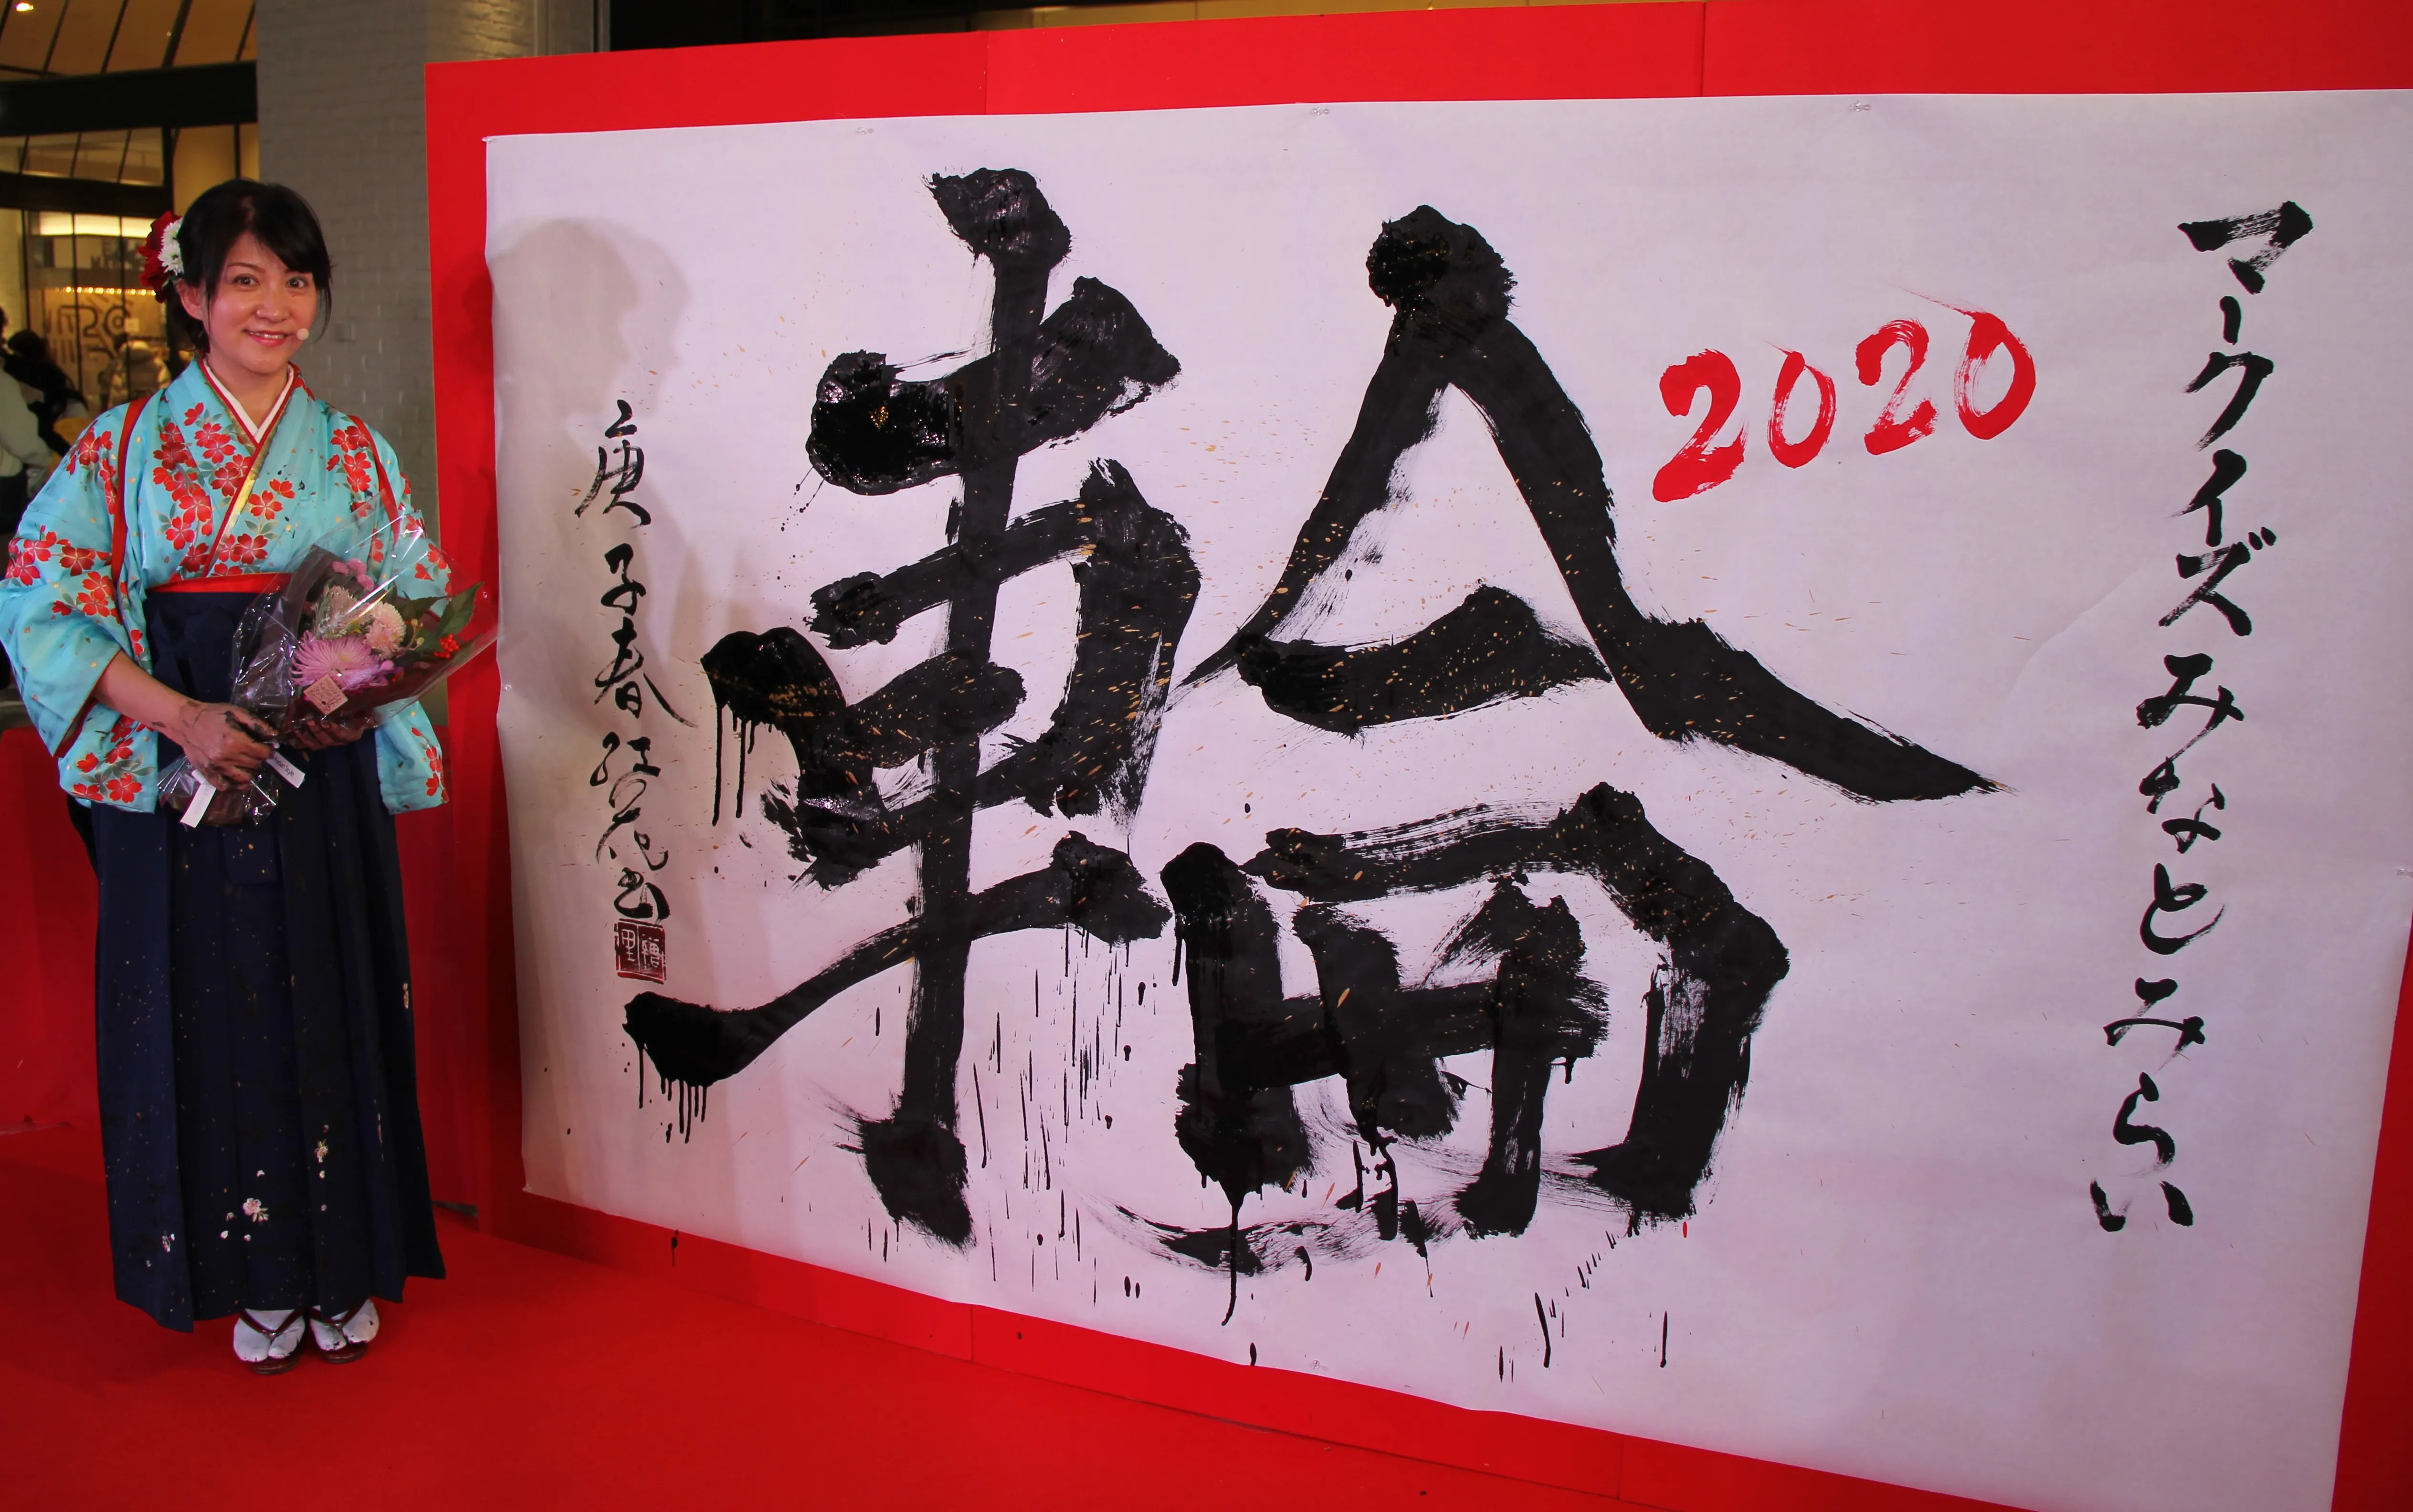 マークイズみなとみらい
2020
輪
庚子春 紅花書